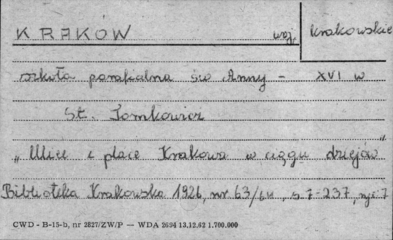 KRAKÓW woj. krakowskie
szkoła parafialna św Anny - XVI w
St. Tomkowicz
„Ulice i place Krakowa w ciągu dziejów"
Biblioteka Krakowska 1926, nr 63/64, s. 7-237, ryc. 7
CWD - B-15-b, nr 2827/ZW/P — WDA 2694 13.12.62 1.700.000